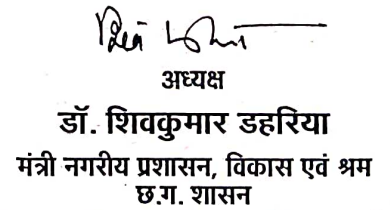 अध्यक्ष
डॉ. शिवकुमार डहरिया
मंत्री नगरीय प्रशासन, विकास एवं श्रम
छ.ग. शासन